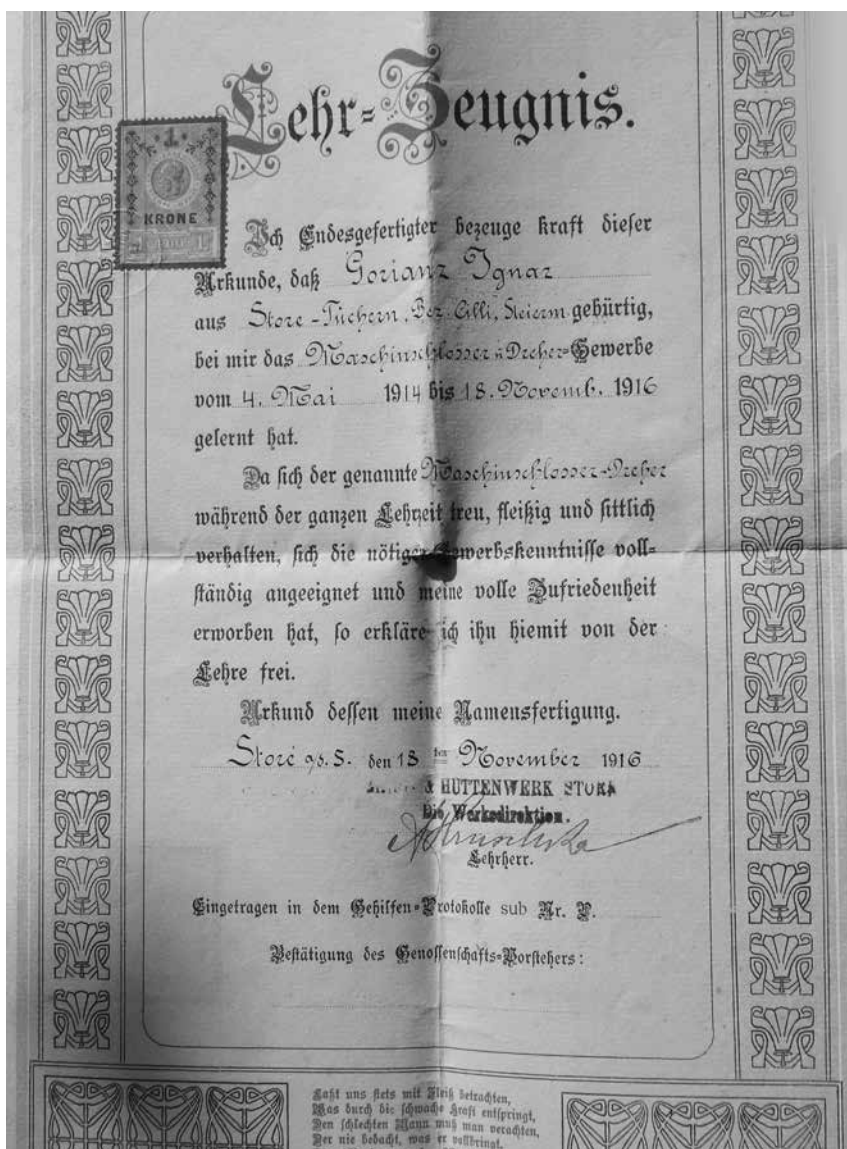 Lehr-Zeugnis.
1
KRONE
Ich Endesgefertigter bezeuge kraft dieser
Urkunde, daß Gorianz Ignaz
aus Store-Tüchern, Bez. Cilli, Steierm. gebürtig,
bei mir das Maschinschlosser u Dreher-Gewerbe
vom 4. Mai 1914 bis 18. Novemb. 1916
gelernt hat.
Da sich der genannte Maschinschlosser-Dreher
während der ganzen Lehrzeit treu, fleißig und sittlich
verhalten, sich die nötigen Gewerbskenntnisse voll-
ständig angeeignet und meine volle Zufriedenheit
erworben hat, so erkläre ich ihn hiemit von der
Lehre frei.
Urkund dessen meine Namensfertigung.
Storé a/d. S. den 18 ten November 1916
& HÜTTENWERK STORÉ
Die Werksdirektion.
Lehrherr.
Eingetragen in dem Gehilfen-Protokolle sub Nr. P.
Bestätigung des Genossenschafts-Vorstehers:
Laßt uns stets mit Fleiß betrachten,
Was durch die schwache Kraft entspringt,
Den schlechten Mann muß man verachten,
Der nie bedacht, was er vollbringt.